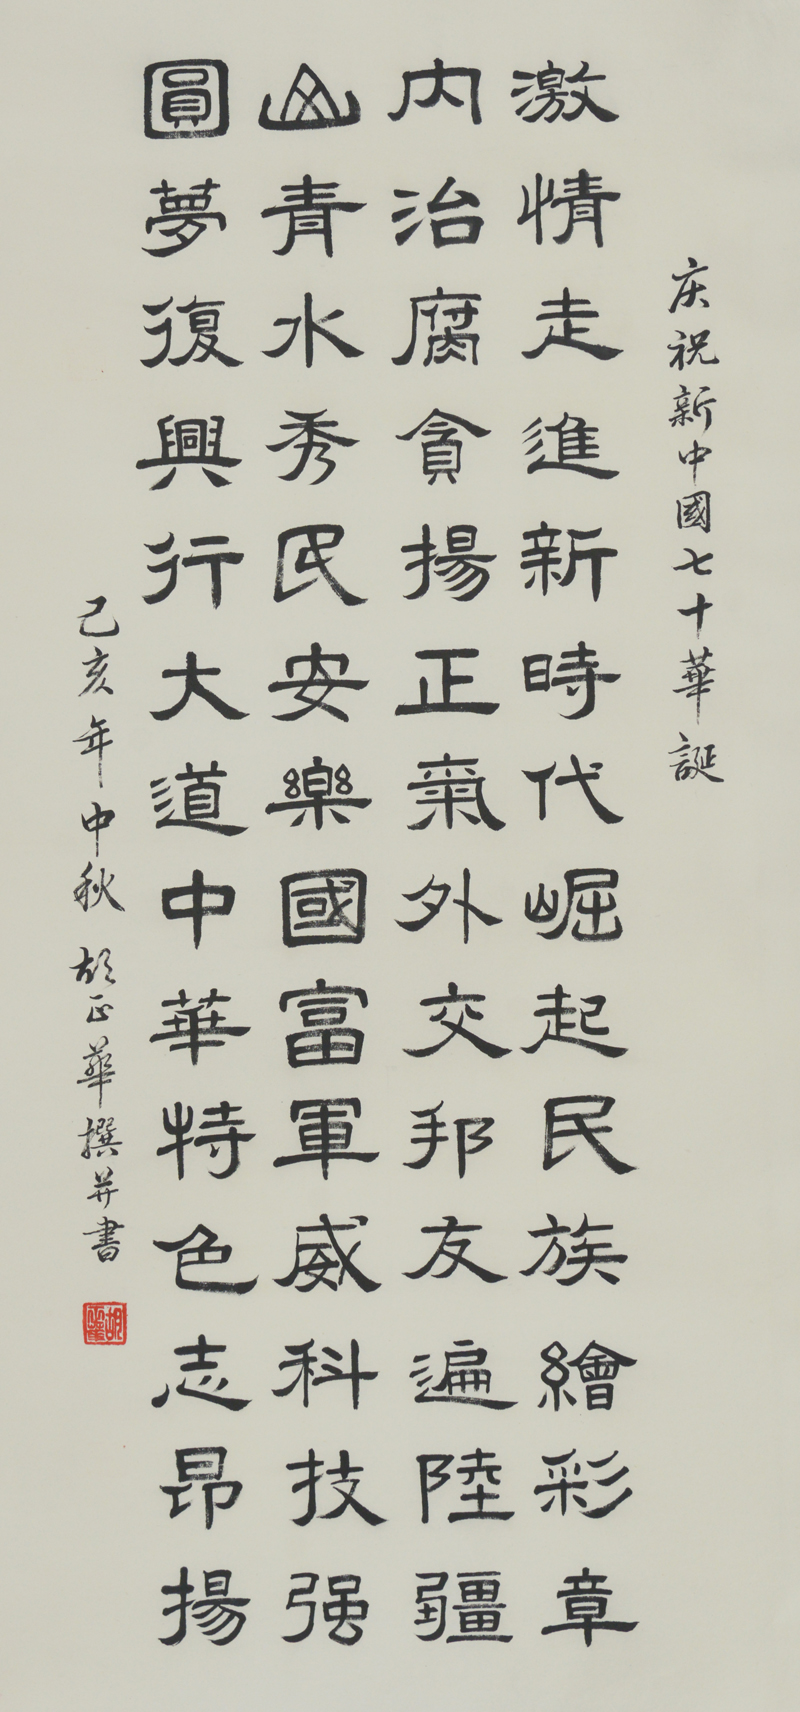 庆祝新中國七十華誕
激情走進新時代崛起民族繪彩章
内治腐貪揚正氣外交邦友遍陸疆
山青水秀民安樂國富軍威科技强
圓夢復興行大道中華特色志昂揚
己亥年中秋 胡正華撰并書